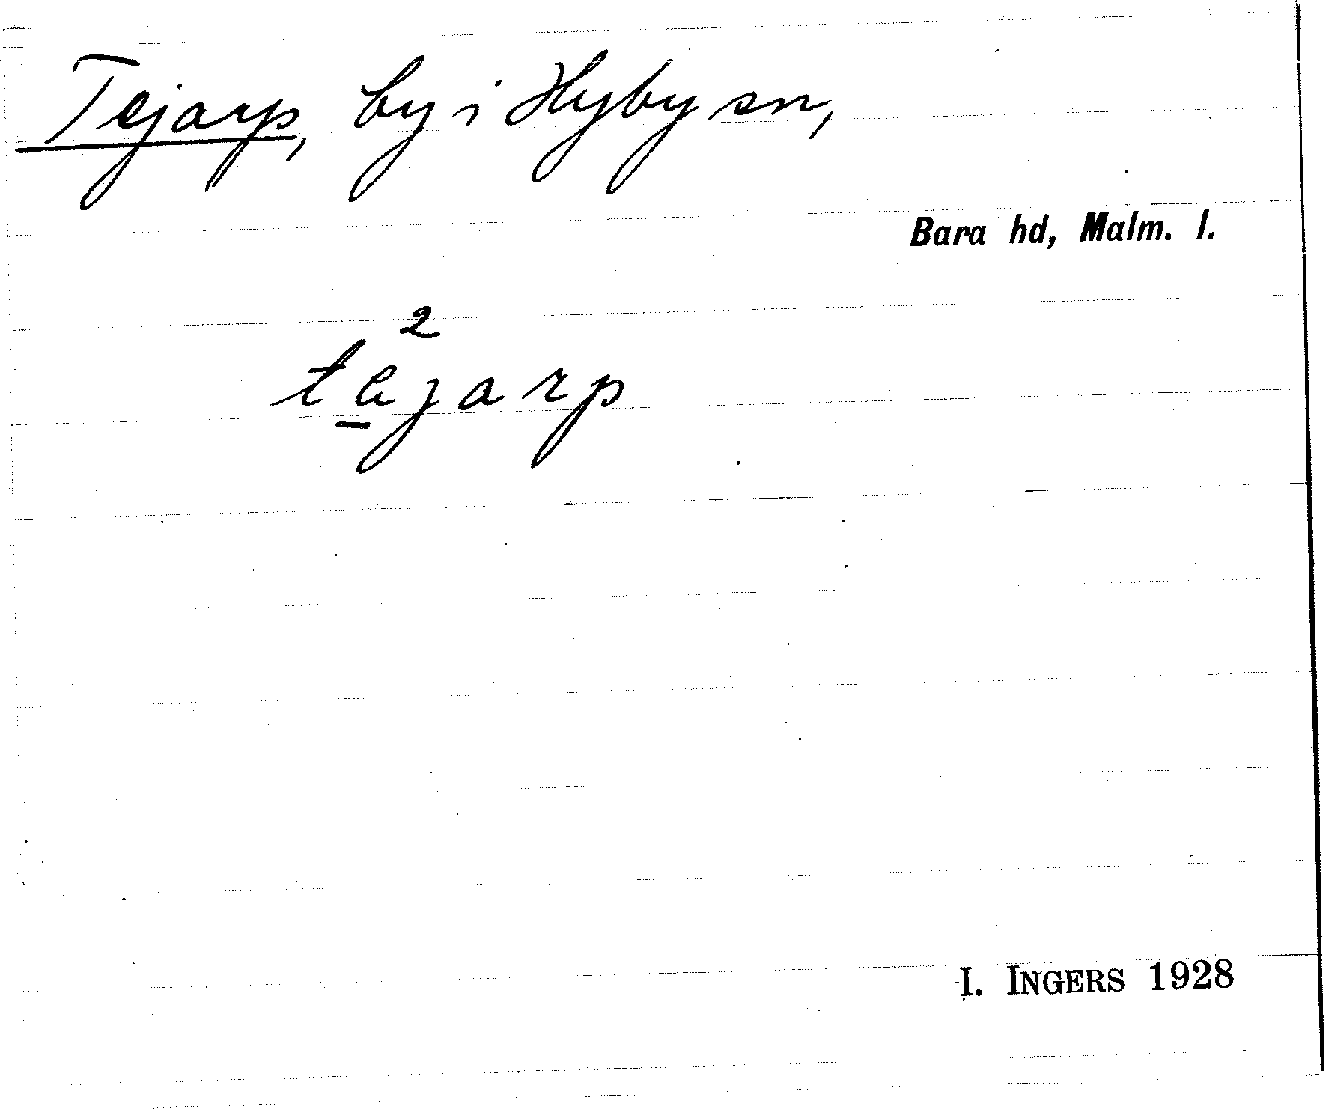 Tejarp, by i Hyby sn,
Bara hd, Malm. l.
2
tejarp
I. INGERS 1928